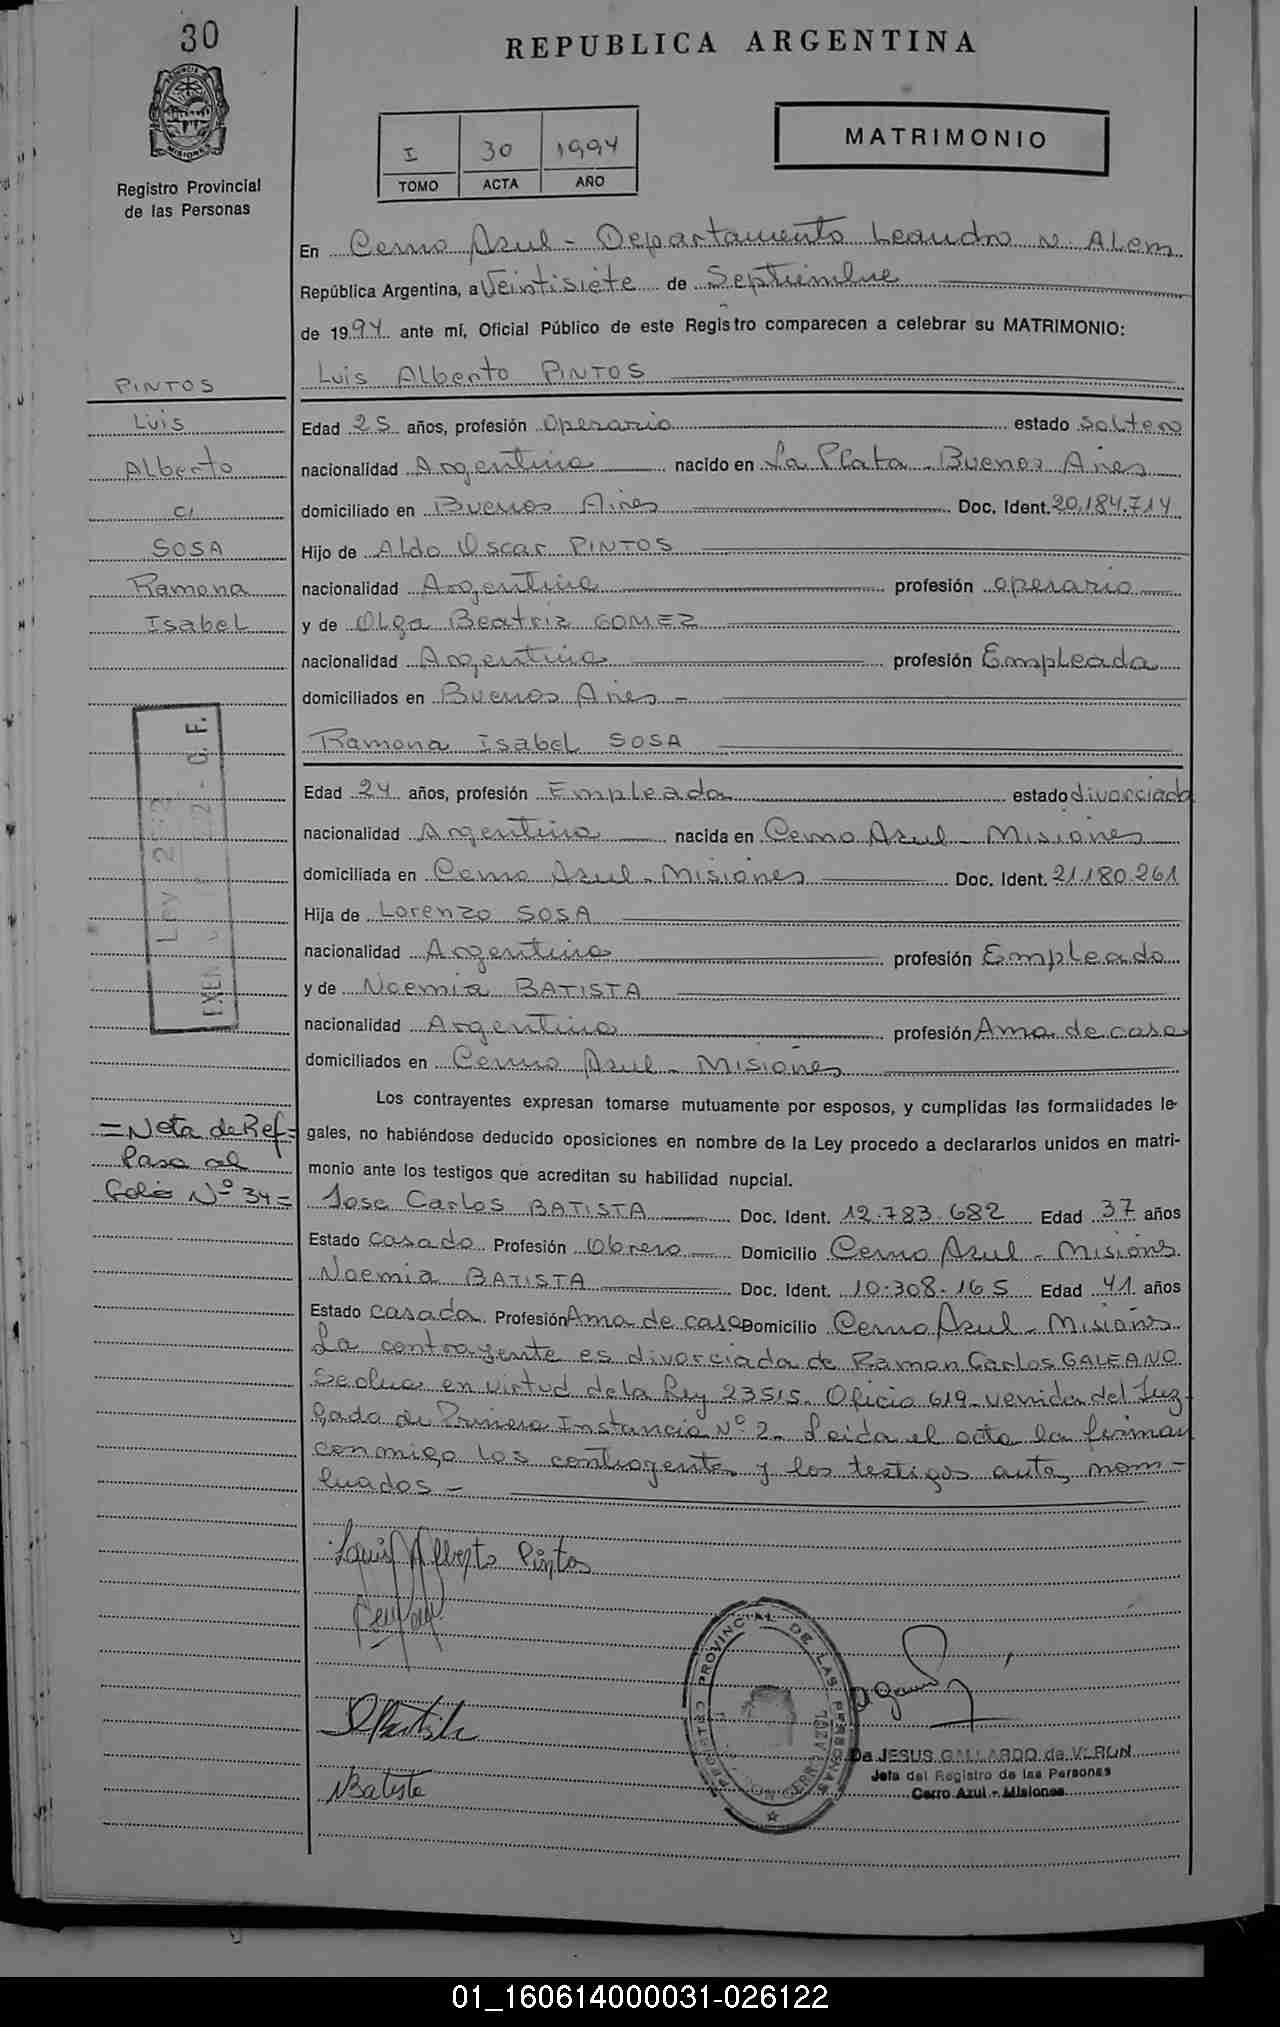 30
REPUBLICA ARGENTINA
PROVINCIA DE
MISIONES
Registro Provincial
de las Personas
I 30 1994
TOMO ACTA AÑO
MATRIMONIO
En Cerro Azul - Departamento Leandro N. Alem
República Argentina, a Veintisiete de Septiembre
de 1994 ante mí, Oficial Público de este Registro comparecen a celebrar su MATRIMONIO:
Luis Alberto PINTOS
PINTOS
Luis
Alberto
c/
SOSA
Ramona
Isabel
Edad 25 años, profesión Operario estado Soltero
nacionalidad Argentina nacido en La Plata - Buenos Aires
domiciliado en Buenos Aires Doc. Ident. 20.184.714
Hijo de Aldo Oscar PINTOS
nacionalidad Argentina profesión operario
y de Olga Beatriz GOMEZ
nacionalidad Argentina profesión Empleada
domiciliados en Buenos Aires -
Ramona Isabel SOSA
Edad 24 años, profesión Empleada estado divorciada
nacionalidad Argentina nacida en Cerro Azul - Misiones
domiciliada en Cerro Azul - Misiones Doc. Ident. 21.180.261
Hija de Lorenzo SOSA
nacionalidad Argentina profesión Empleado
y de Noemia BATISTA
nacionalidad Argentina profesión Ama de casa
domiciliados en Cerro Azul - Misiones
LEY 2
EXEN - C. F.
Los contrayentes expresan tomarse mutuamente por esposos, y cumplidas las formalidades le-
gales, no habiéndose deducido oposiciones en nombre de la Ley procedo a declararlos unidos en matri-
monio ante los testigos que acreditan su habilidad nupcial.
= Nota de Ref=
Pasa al
Folio Nº 34=
Jose Carlos BATISTA Doc. Ident. 12.783.682 Edad 37 años
Estado Casado Profesión Obrero Domicilio Cerro Azul - Misiones
Noemia BATISTA Doc. Ident. 10.308.165 Edad 41 años
Estado casada Profesión Ama de casa Domicilio Cerro Azul - Misiones
La contrayente es divorciada de Ramon Carlos GALEANO
en virtud de la Ley 23515. Oficio 619 - venida del Juz-
gado de Primera Instancia Nº 2 - Leida el acta la firman
conmigo los contrayentes y los testigos antes nom-
brados -
Luis Alberto Pintos
Batista
NBatista
REGISTRO PROVINCIAL DE LAS PERSONAS
CERRO AZUL
Da JESUS GALLARDO de VERON
Jefa del Registro de las Personas
Cerro Azul - Misiones
01_160614000031-026122